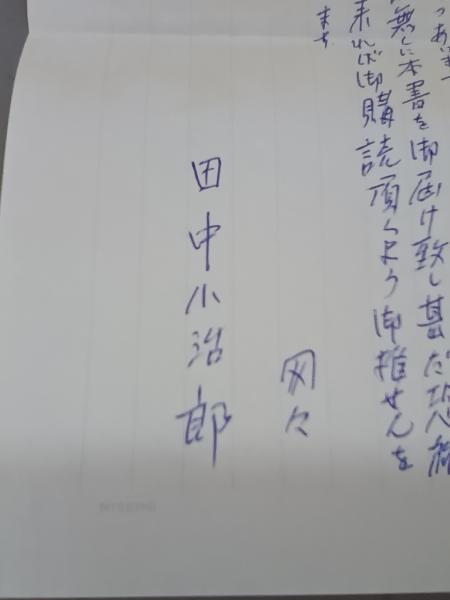 つあいまつ
無しに本書を御届け致し甚だ恐縮
来れば御購読頂くよう御推せんを
ます
田中小治郎